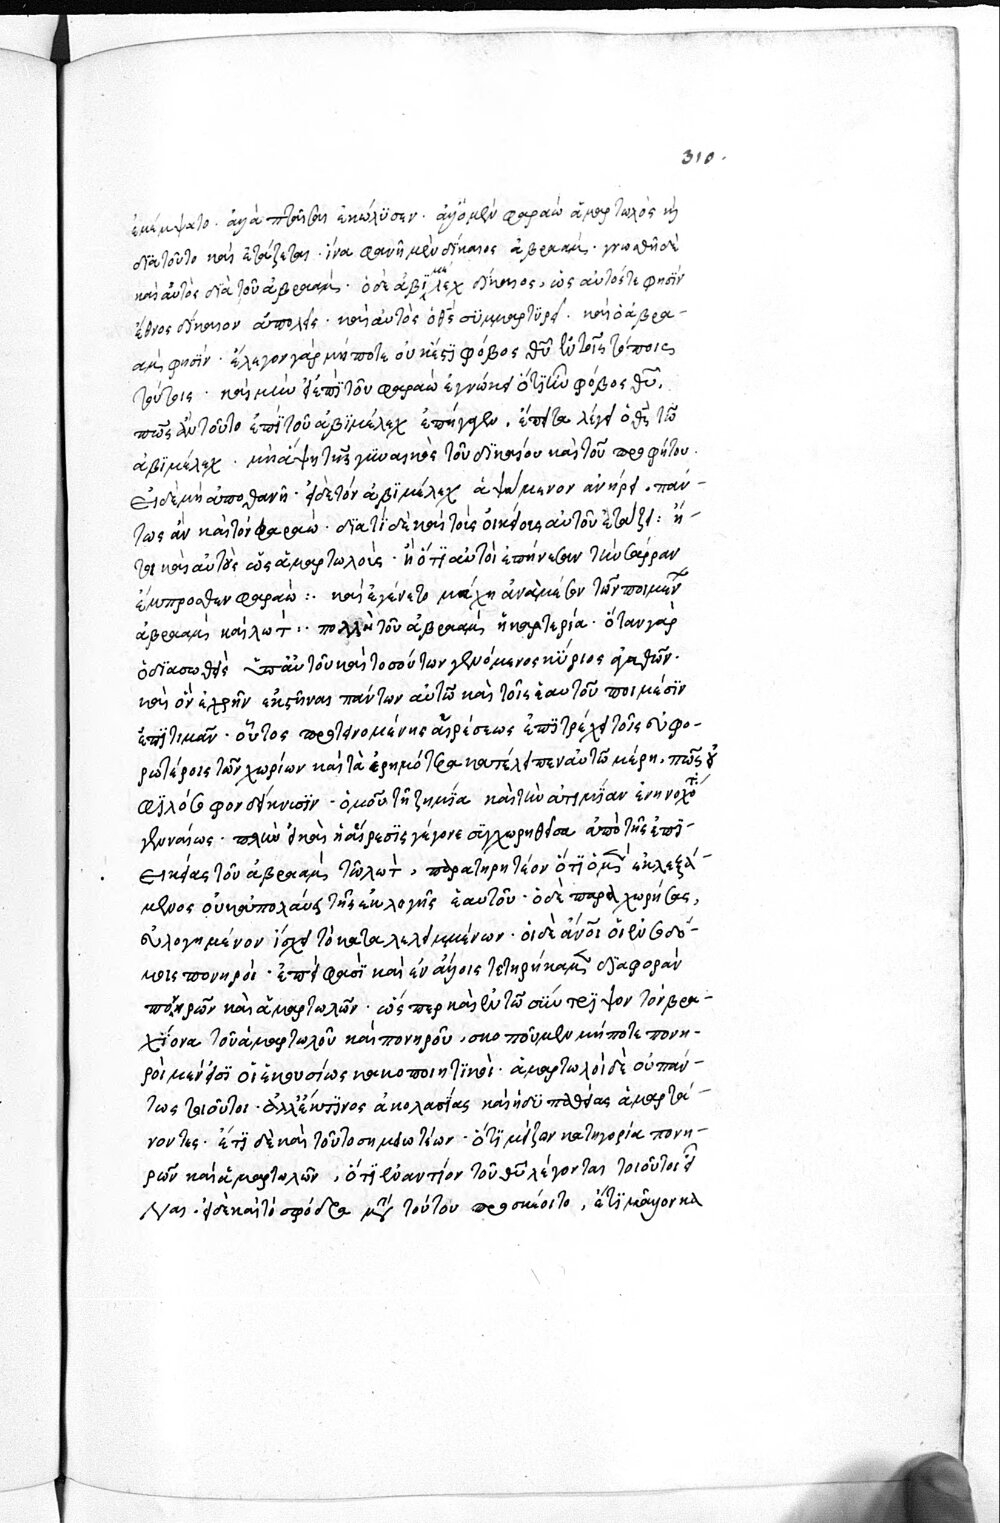 310.
ἐμέμψατο · ἀλλὰ πταῖσαι ἐκώλϋσεν · ἀλλ' ὁ μὲν φαραὼ ἁμαρτωλὸς ἦν
διατοῦτο καὶ ἐτάζεται · ἵνα φανῆ μὲν δίκαιος ἀβραάμ · γνωσθῆ δὲ
καὶ αὐτὸς διὰ τοῦ ἀβραάμ · ὁ δὲ ἀβϊμέλεχ δίκαιος, ὡς αὐτός τε φησϊν
ἔθνος δίκαιον ἀπολεῖς · καὶ αὐτὸς ὁ θς συμμαρτυρεῖ · καὶ ὁ ἀβρα-
ὰμ φησὶν · ἔλεγον γὰρ μήποτε οὐκ ἔστϊ φόβος θυ ἐν τοῖς τόποις
τούτοις · καὶ μὴν ἐπὶ τοῦ φαραὼ ἐγνώκει ὅτϊ οὐκ ἦν φόβος θυ,
πῶς ἂν τοῦτο ἐπὶ τοῦ ἀβϊμέλεχ ἐπήγαγεν, ἔπειτα λέγει ὁ θς τῶ
ἀβϊμέλεχ · μὴ ἅψη τῆς γϋναικὸς τοῦ δϊκαίου καὶ τοῦ προφήτου ·
εἰ δὲ μὴ ἀποθανῆ · εἰ δὲ τὸν ἀβϊμέλεχ ἁψάμενον ἀνήρει, πάν-
τως ἂν καὶ τὸν φαραώ · διατί δὲ καὶ τοὺς οἰκείους αὐτοῦ ἐτάζει : ἤ-
τοι καὶ αὐτοὺς ὡς ἁμαρτωλοὺς · ἢ ὅτϊ αὐτοὶ ἐπήνεσαν τὴν σάρραν
ἔμπροσθεν φαραώ :· καὶ ἐγένετο μάχη ἀναμέσον τῶν ποιμένων
ἀβραὰμ καὶ λώτ ·· πολλὴ τοῦ ἀβραὰμ ἡ καρτερία · ὅταν γὰρ
ὁ διασωθεὶς ὑπ' αὐτοῦ καὶ τοσούτων γενόμενος κύριος ἀγαθῶν ·
καὶ ὃν ἐχρῆν ἐκστῆναι πάντων αὐτῶ καὶ τοῖς ἑαυτοῦ ποιμέσϊν
ἐπιτιμᾶν · οὗτος προτεινομένης αἱρέσεως ἐπϊτρέχει τοῖς εὐφο-
ρωτέροις τῶν χωρίων καὶ τὰ ἐρημότερα κατέλειπεν αὐτῶ μέρη, πῶς οὐ
φϊλόσοφον δείκνυσϊν · ὁμοῦ τὴ ζημία καὶ τὴν ἀτιμίαν ἐνηνοχότα
γενναίως · πλὴν εἰ καὶ ἡ αἵρεσϊς γέγονε συγχωρηθεῖσα ἀπὸ τῆς ἐπι-
εικείας τοῦ ἀβραὰμ τῶ λώτ, παρατηρητέον ὅτϊ ὁ μὲν ἐκλεξά-
μενος οὐκ ἀπολαύει τῆς ἐκλογῆς ἑαυτοῦ · ὁ δὲ παραχωρήσας,
εὐλογημένον ἴσχει τὸ καταλελειμμένων · οἱ δὲ ἄνοι οἱ ἐν σοδό-
μοις πονηροί · ἐπεὶ φασὶ καὶ ἐν ἄλλοις τετηρήκαμεν διαφορὰν
πονηρῶν καὶ ἁμαρτωλῶν · ὥσπερ καὶ ἐν τῶ σύντρϊψον τὸν βρα-
χίονα τοῦ ἁμαρτωλοῦ καὶ πονηροῦ, σκοποῦμεν μήποτε πονη-
ροὶ μέν εἰσϊ οἱ ἑκουσίως κακοποιητϊκοί · ἁμαρτωλοὶ δὲ οὐ πάν-
τως τοιοῦτοι · ἀλλ' ἔκ τϊνος ἀκολασίας καὶ ἡδυπαθείας ἁμαρτά-
νοντες · ἔτϊ δὲ καὶ τοῦτο σημειωτέων · ὅτϊ μείζων κατηγορία πονη-
ρῶν καὶ ἁμαρτωλῶν, ὅτϊ ἐναντίον τοῦ θυ λέγονται τοιοῦτοι εἶ-
ναι · εἰ δὲ καὶ τὸ σφόδρα μετὰ τούτου προσκέοιτο, ἔτϊ μᾶλλον κα